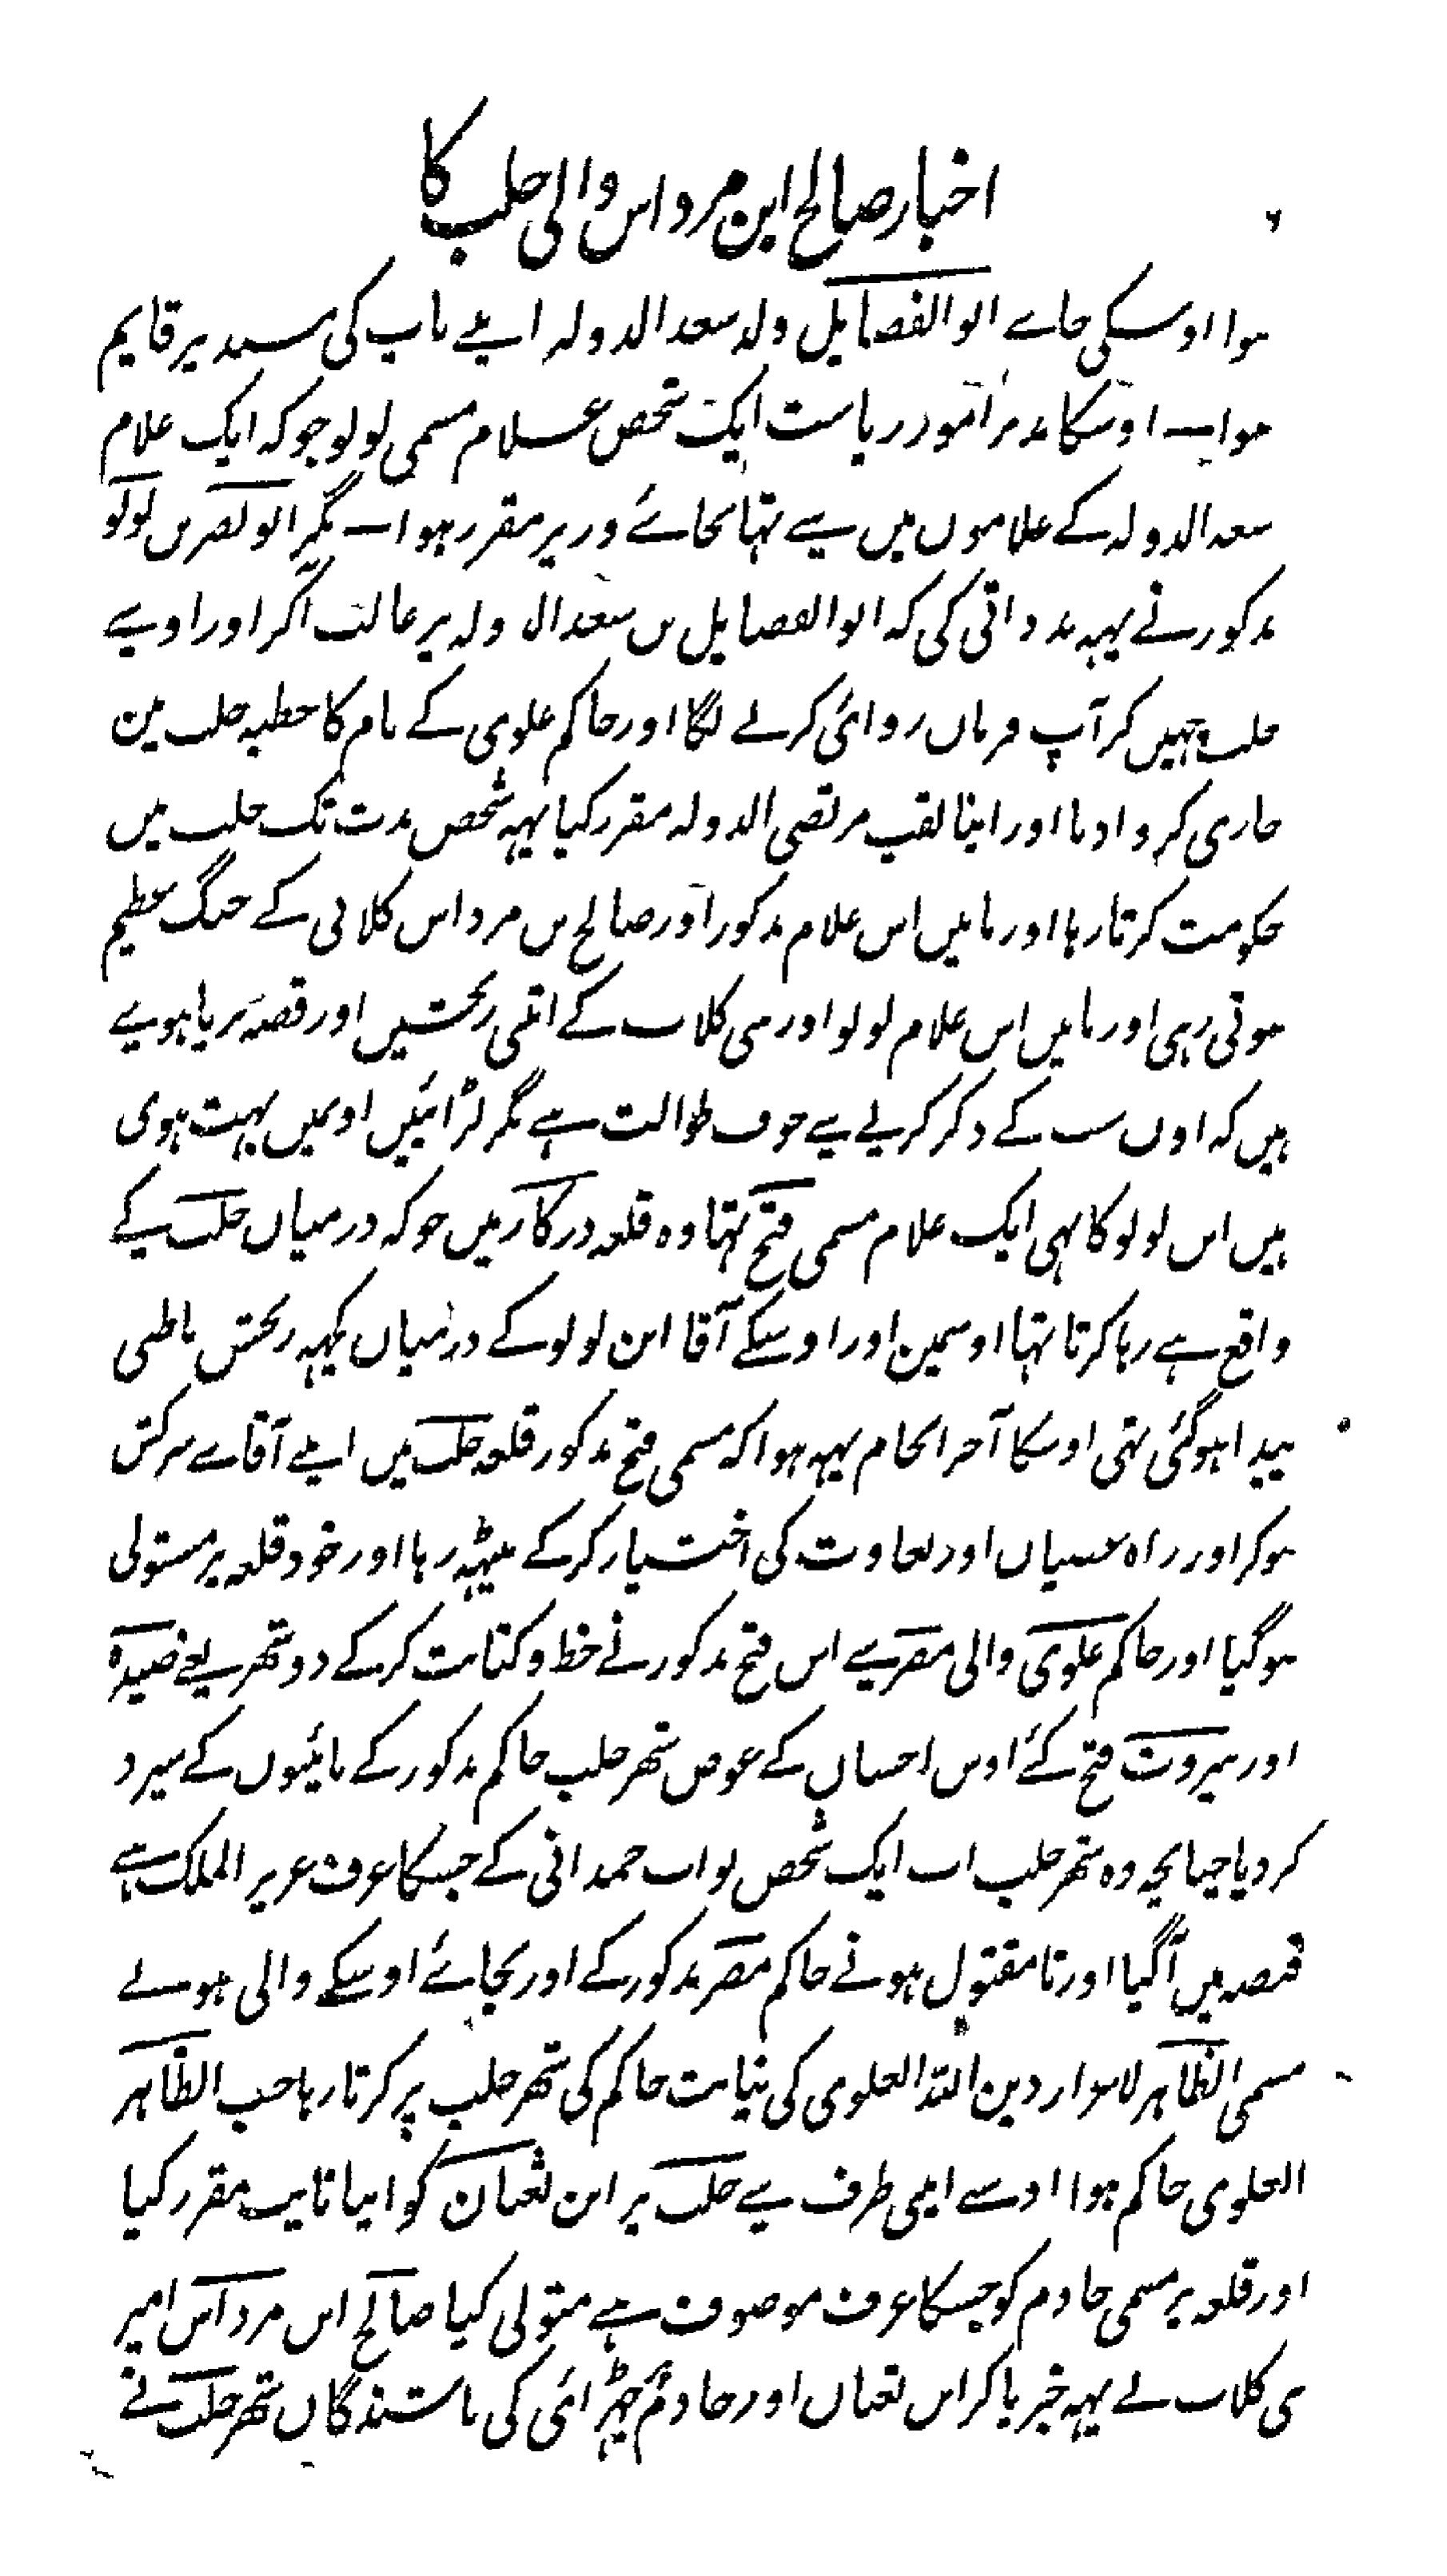 اخبار صالح ابن مرداس والی حلب کا
ہوا اوسکی جاے ابوالفضایل ولد سعد الدولہ اپنے باپ کی مسند پر قایم
ہوا۔ اوسکا مدبر امور ریاست ایک شخص غلام مسمی لولو جو کہ ایک غلام
سعد الدولہ کے غلاموں میں سے تہا بجاۓ وزیر مقرر ہوا۔ مگر ابو نصر بن لولو
مذکور نے یہہ بد ذاتی کی کہ ابو الفضایل بن سعد الدولہ پر غالب آکر اور اوسے
حلب چہین کر آپ فرماں روائی کرنے لگا اور حاکم علوی کے نام کا خطبہ حلب مین
جاری کروادیا اور اپنا لقب مرتضی الدولہ مقرر کیا یہہ شخص مدت تک حلب میں
حکومت کرتا رہا اور مابیں اس غلام مذکور اور صالح بن مرداس کلابی کے جنگ عظیم
ہوتی رہی اور مابیں اس غلام لولو اور بنی کلاب کے اتنی رنجشیں اور قصہ برپا ہویے
ہیں کہ اون سب کے ذکر کرنے سے خوف طوالت ہے مگر لڑائیں اونمیں بہت ہوی
ہیں اس لولو کا بہی ایک غلام مسمی فتح تہا وہ قلعہ درکار میں جو کہ درمیاں حلب کے
واقع ہے رہا کرتا تہا اوسمین اور اوسکے آقا ابن لولو کے درمیاں کچہہ رنجش باطنی
پیدا ہوگئی تہی اوسکا آخر انجام یہہ ہوا کہ مسمی فتح مذکور قلعہ حلب میں اپنے آقا سے سرکش
ہوکر اور راہ عصیاں اور بغاوت کی اختیار کرکے بیٹہہ رہا اور خود قلعہ پر مستولی
ہوگیا اور حاکم علوی والی مصر سے اس فتح مذکور نے خط و کتابت کرکے دو شہر یعنے صیدہ
اور بیروت فتح کۓ اوس احساں کے عوض شہر حلب حاکم مذکور کے نائبوں کے سپرد
کردیا چنانچہ وہ شہر حلب اب ایک شخص نواب حمدانی کے جسکا عرف عزیز الملک ہے
قبضہ میں آگیا اور تا مقتول ہونے حاکم مصر مذکور کے اور بجاۓ اوسکے والی ہونے
مسمی الظاہر لاعزاز دین اللہ العلوی کی نیابت حاکم کی شہر حلب پر کرتا رہا جب الظاہر
العلوی حاکم ہوا اوسے اپنی طرف سے حلب پر ابن ثعبان کو اپنا نایب مقرر کیا
اور قلعہ پر مسمی خادم کو جسکا عرف موصوف ہے متولی کیا صالح ابن مرداس امیر
بنی کلاب نے یہہ خبر پاکر ابن ثعباں اور خادم پر چڑہائی کی باشندگاں شہر حلب نے